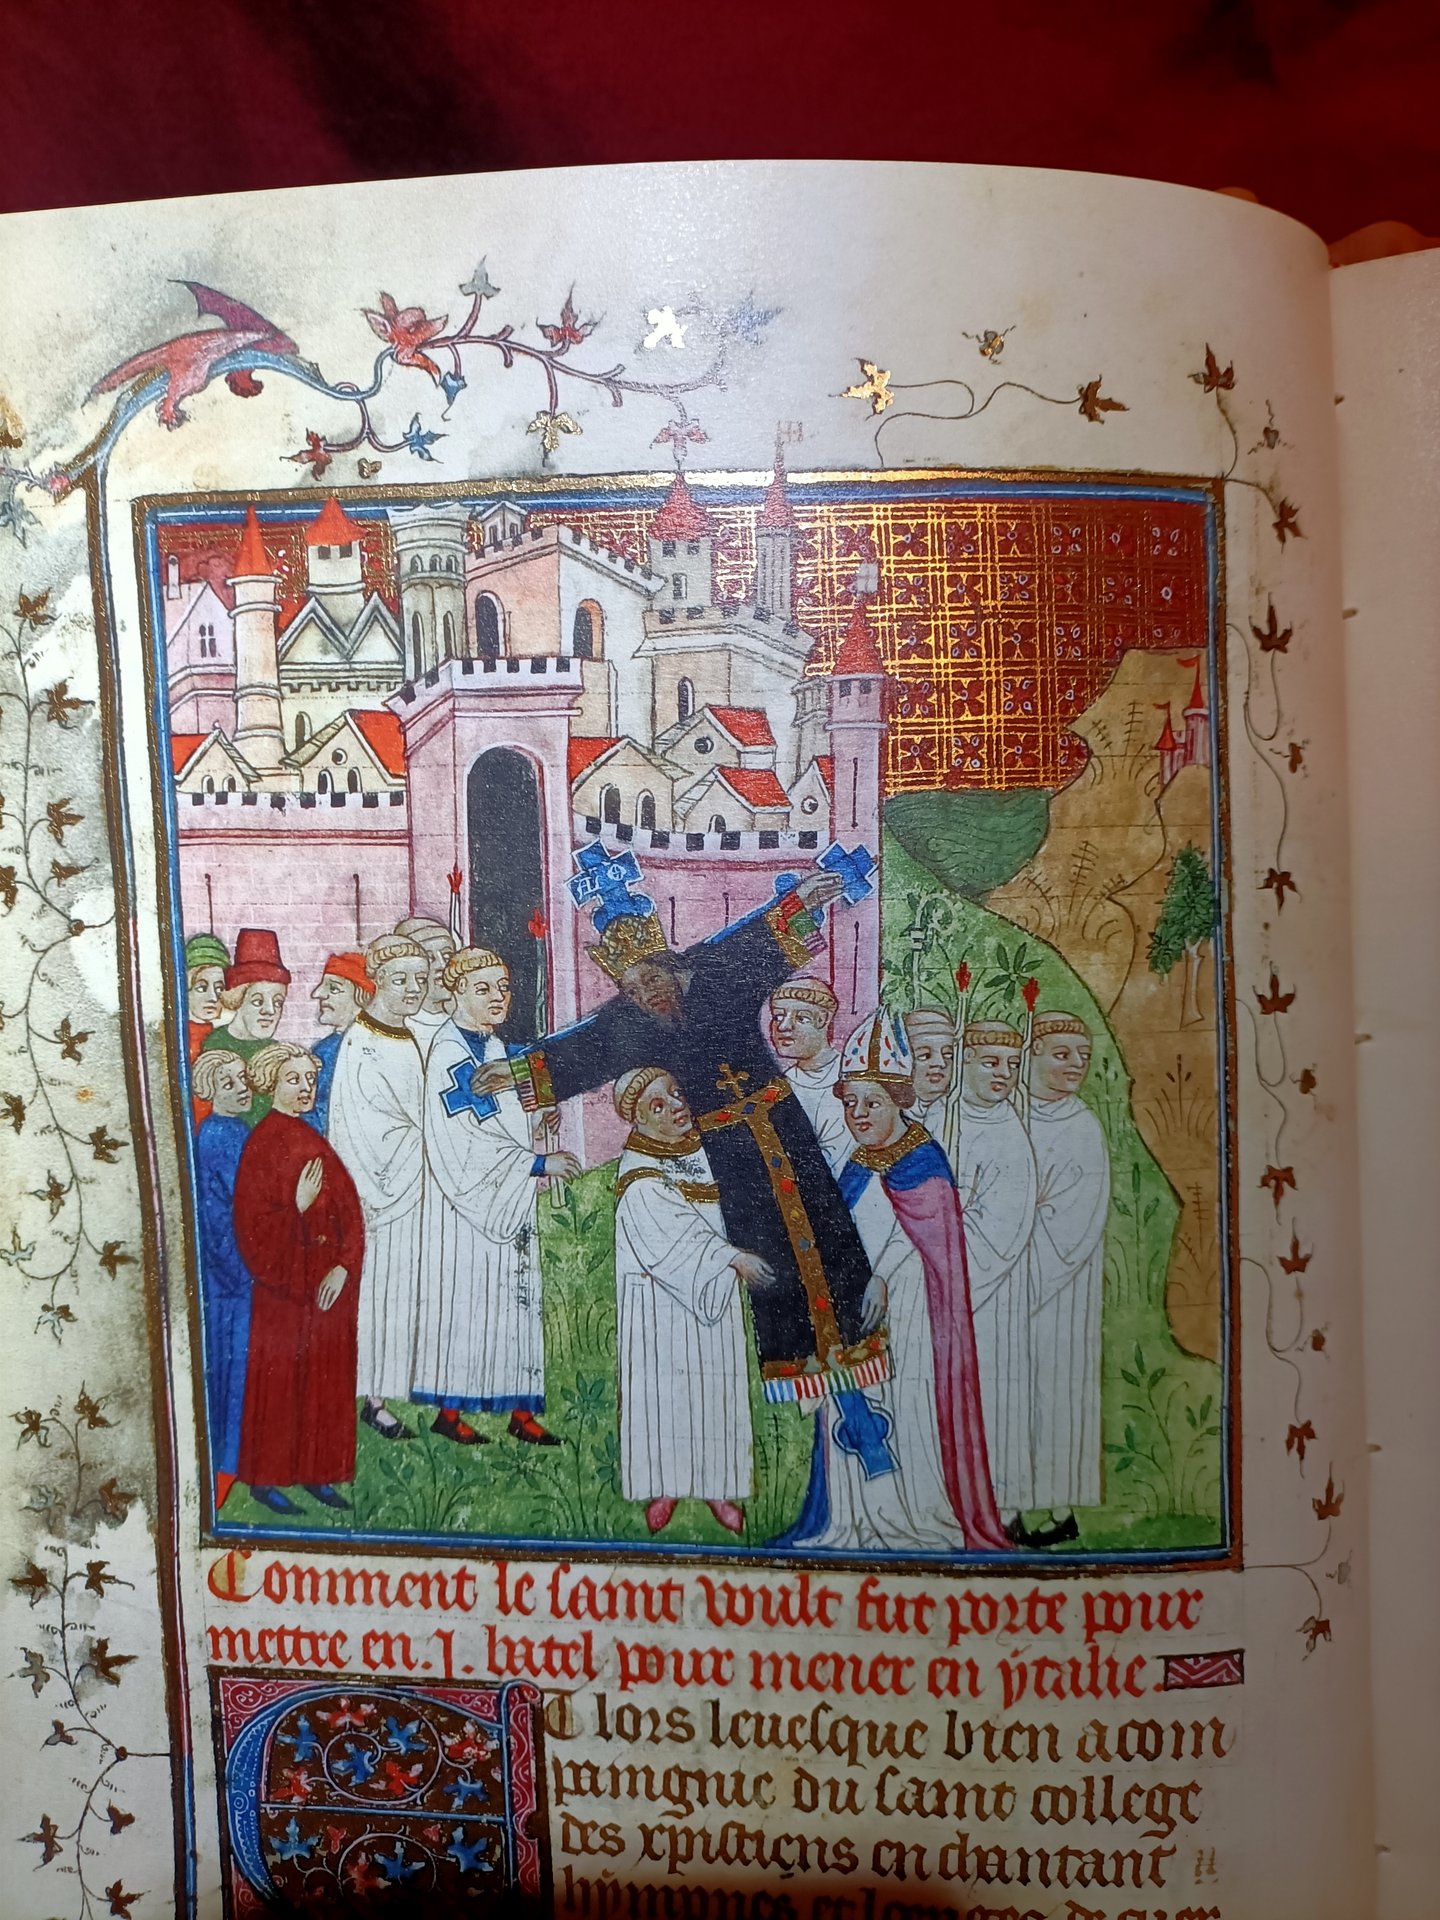 A Ω
Comment le saint woult fut porte pour
mettre en .J. batel pour mener en ytalie.
Et lors leuesque bien acom
paingnie du saint college
des xpistiens en chantant
hympnes et